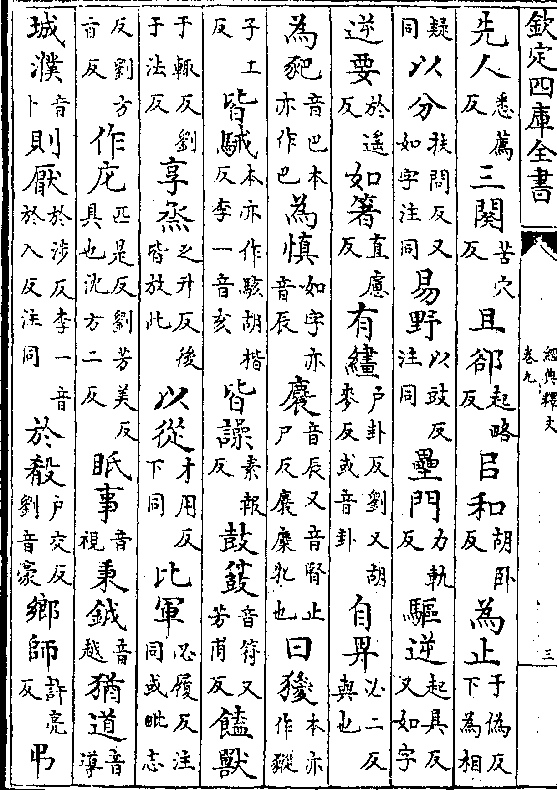 欽定四庫全書
經典釋文
卷九
三
先人悉薦反三闋苦穴反且郤起略反㠯和胡卧反為止于偽反下為相
疑同以分扶問反又如字注同易野以豉反注同壘門力軌反驅逆起具反又如字
逆要於遥反如箸直慮反有繣户卦反劉又胡麥反或音卦自畀必二反與也
為豝音巴本亦作巴為慎如字亦音辰麎音辰又音腎止尸反麎麋牝也曰本亦作豵
子工反皆駴本亦作駭胡楷反李一音亥皆譟素報反鼓音符又芳甫反饁獸
于輒反劉于法反享烝之升反後皆放此以從才用反下同比軍必履反注同或毗志
反劉方反作庀匹是反劉芳美反具也沈方二反眂事音視秉鉞音越猶道音導
城濮音卜則厭於涉反李一音於入反注同於殽户交反劉音豪鄉師許亮反弔